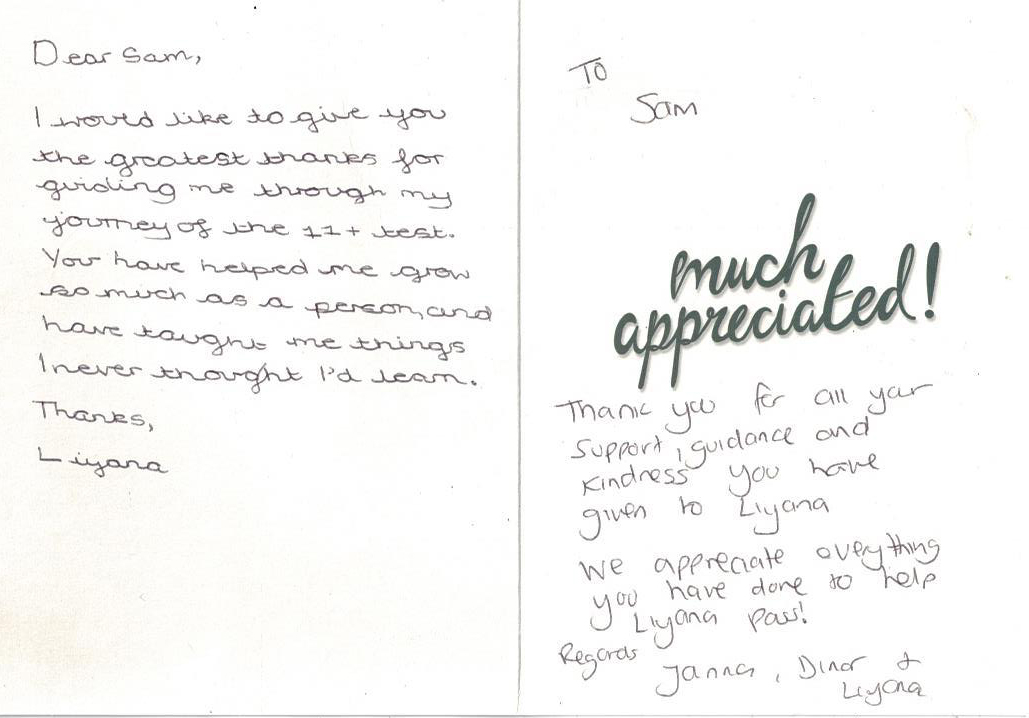 Dear Sam,
I would like to give you
the greatest thanks for
guiding me through my
journey of the 11+ test.
You have helped me grow
so much as a person, and
have taught me things
I never thought I'd learn.
Thanks,
Liyana
To
Sam
much
appreciated!
Thank you for all your
support, guidance and
kindness you have
given to Liyana
We appreciate everything
you have done to help
Liyana pass!
Regards
Janna, Dinar +
Liyana